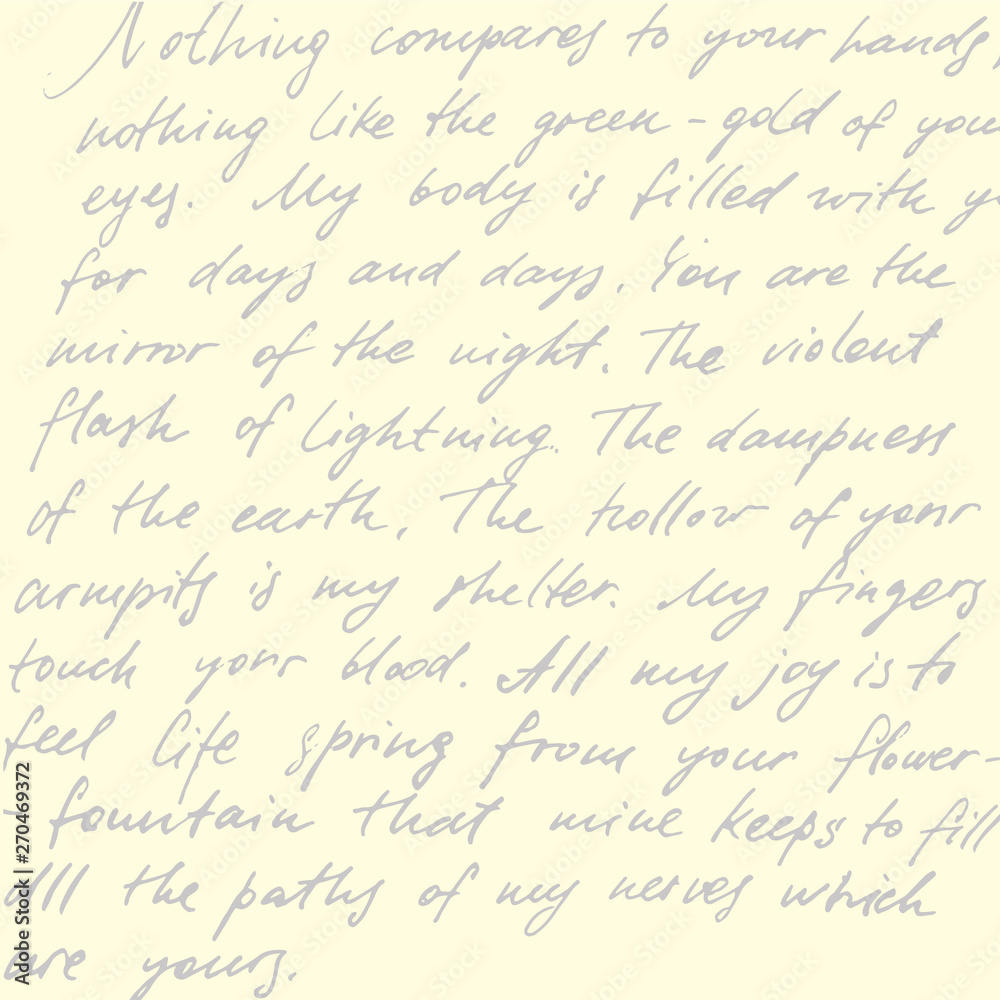 Nothing compares to your hands,
nothing like the green-gold of you
eyes. My body is filled with yo
for days and days. You are the
mirror of the night. The violent
flash of lightning. The dampness
of the earth. The hollow of your
armpits is my shelter. My fingers
touch your blood. All my joy is to
feel life spring from your flower-
fountain that mine keeps to fill
all the paths of my nerves which
are yours.
Adobe Stock | #270469372